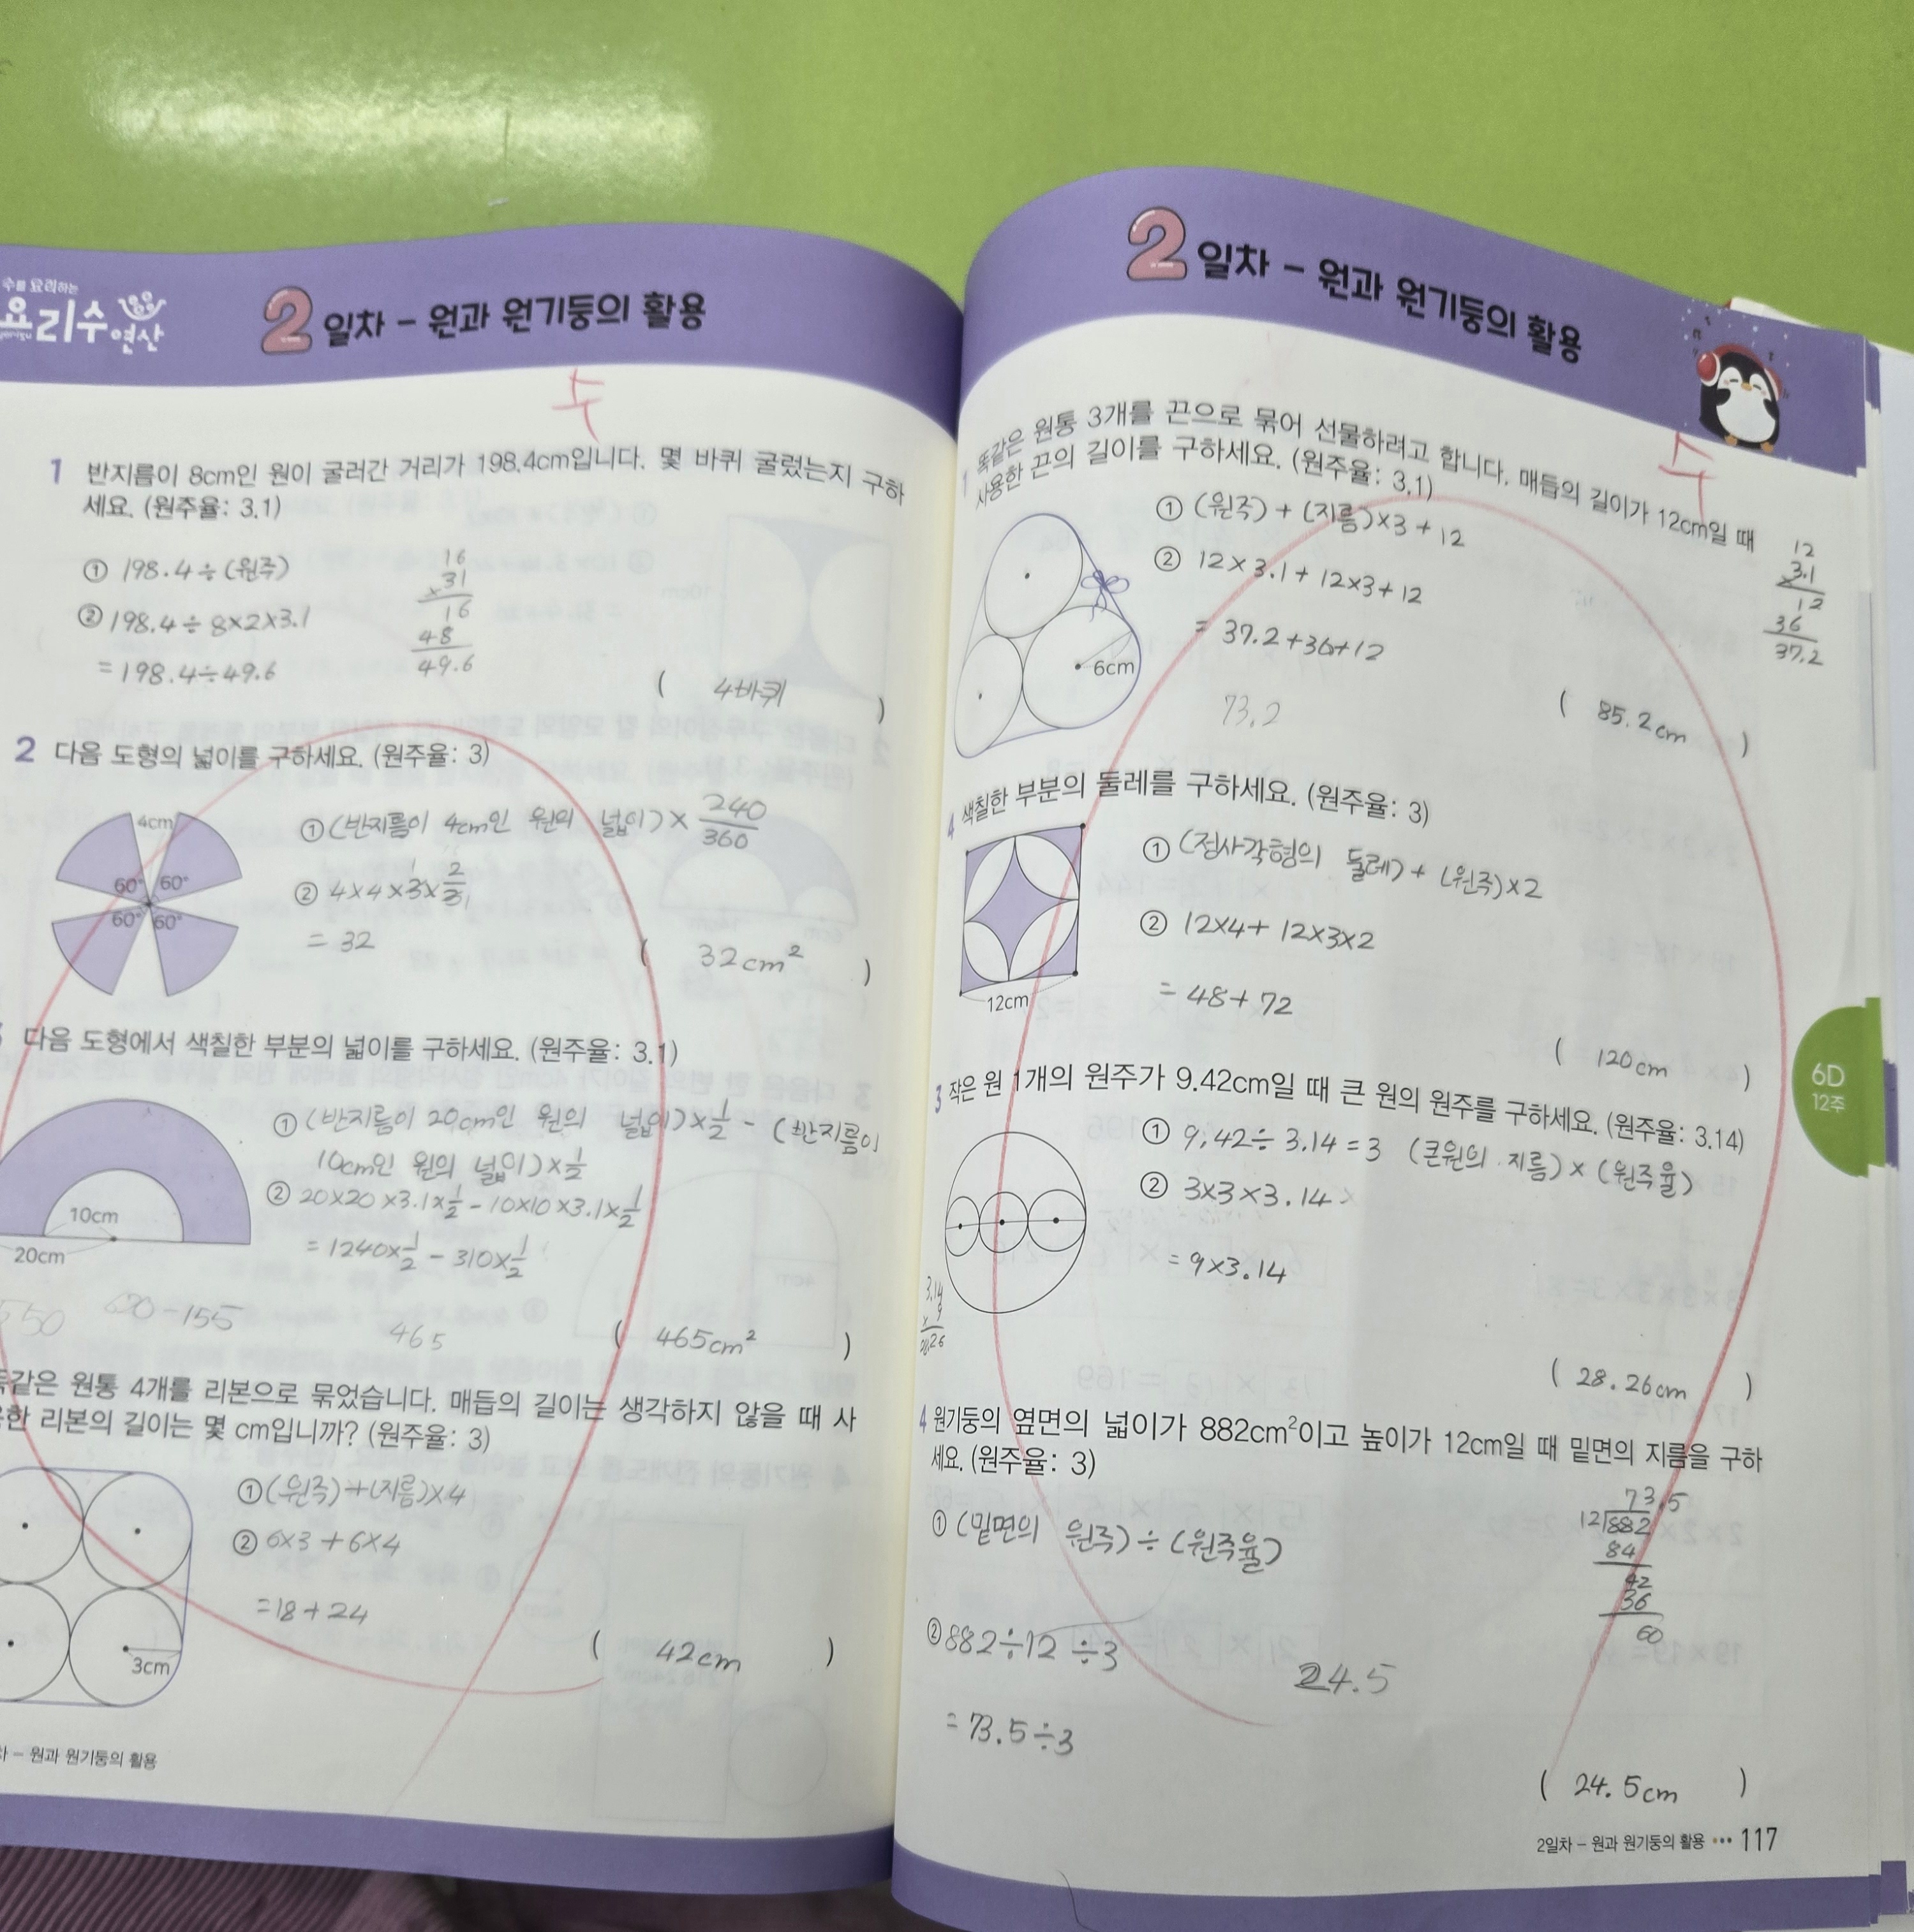 수를 요리하는
요리수 연산
2 일차 - 원과 원기둥의 활용
1 반지름이 8cm인 원이 굴러간 거리가 198.4cm입니다. 몇 바퀴 굴렀는지 구하
세요. (원주율: 3.1)
① 198.4÷(원주)
② 198.4÷8×2×3.1
=198.4÷49.6
16
×31
16
48
49.6
( 4바퀴 )
2 다음 도형의 넓이를 구하세요. (원주율: 3)
4cm
60° 60°
60° 60°
① (반지름이 4cm인 원의 넓이)× 240/360
② 4×4×3×2/3
1
1
= 32
( 32cm² )
다음 도형에서 색칠한 부분의 넓이를 구하세요. (원주율: 3.1)
10cm
20cm
① (반지름이 20cm인 원의 넓이)×1/2 - (반지름이
10cm인 원의 넓이)×1/2
② 20×20×3.1×1/2 - 10×10×3.1×1/2
= 1240×1/2 - 310×1/2
550 620-155
465
( 465cm² )
똑같은 원통 4개를 리본으로 묶었습니다. 매듭의 길이는 생각하지 않을 때 사
용한 리본의 길이는 몇 cm입니까? (원주율: 3)
3cm
① (원주)+(지름)×4
② 6×3+6×4
=18+24
( 42cm )
차 - 원과 원기둥의 활용
2 일차 - 원과 원기둥의 활용
1 똑같은 원통 3개를 끈으로 묶어 선물하려고 합니다. 매듭의 길이가 12cm일 때
사용한 끈의 길이를 구하세요. (원주율: 3.1)
6cm
① (원주)+(지름)×3+12
② 12×3.1+12×3+12
= 37.2+36+12
73.2
12
×3.1
12
36
37.2
( 85.2cm )
4 색칠한 부분의 둘레를 구하세요. (원주율: 3)
12cm
① (정사각형의 둘레)+(원주)×2
② 12×4+12×3×2
= 48+72
( 120cm )
3 작은 원 1개의 원주가 9.42cm일 때 큰 원의 원주를 구하세요. (원주율: 3.14)
① 9.42÷3.14=3 (큰원의 지름)×(원주율)
② 3×3×3.14
= 9×3.14
3.14
× 9
28.26
( 28.26cm )
6D
12주
4 원기둥의 옆면의 넓이가 882cm²이고 높이가 12cm일 때 밑면의 지름을 구하
세요. (원주율: 3)
① (밑면의 원주)÷(원주율)
② 882÷12÷3
= 73.5÷3
24.5
73.5
12)882
84
42
36
60
( 24.5cm )
2일차 - 원과 원기둥의 활용 ••• 117